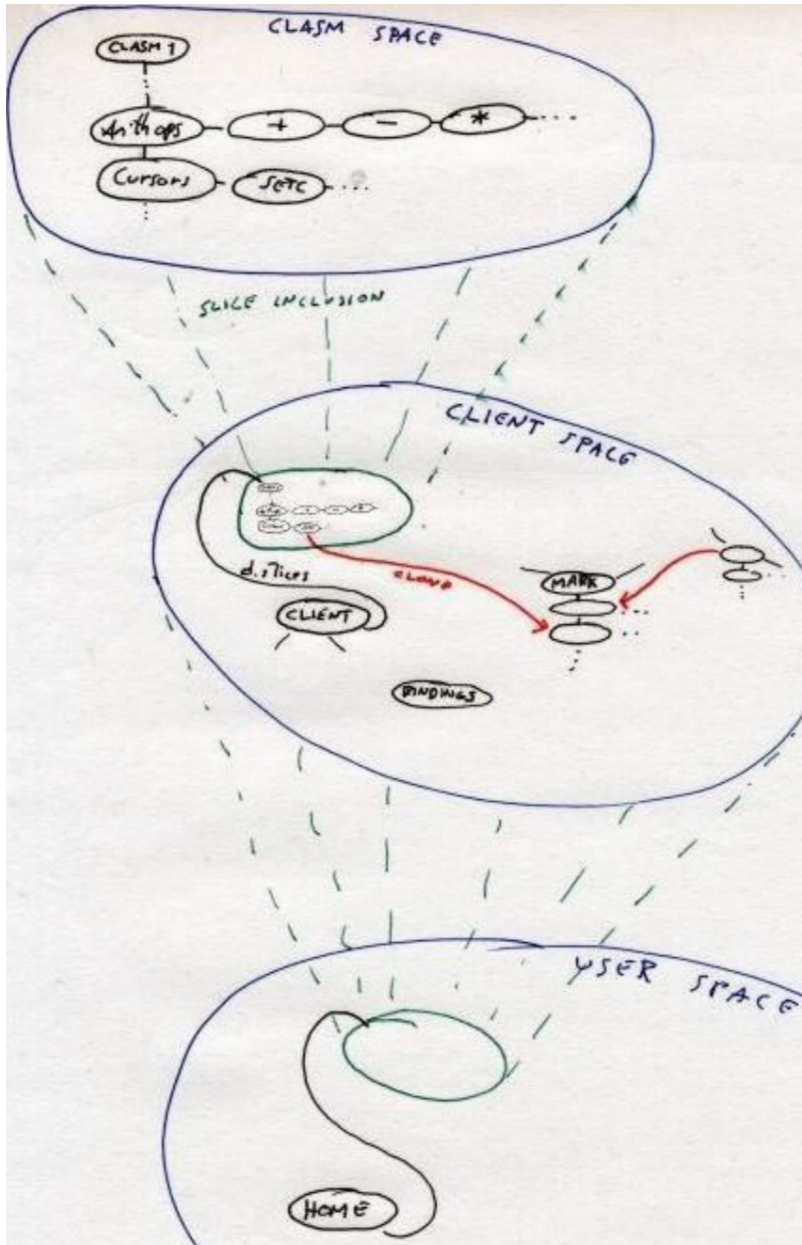 CLASM SPACE
CLASM 1
Arith ops + - *
Cursors SETC
SLICE INCLUSION
CLIENT SPACE
d.slices
CLONE
MARK
CLIENT
BINDINGS
USER SPACE
HOME